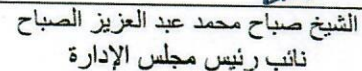 الشيخ صباح محمد عبد العزيز الصباح
نائب رئيس مجلس الإدارة